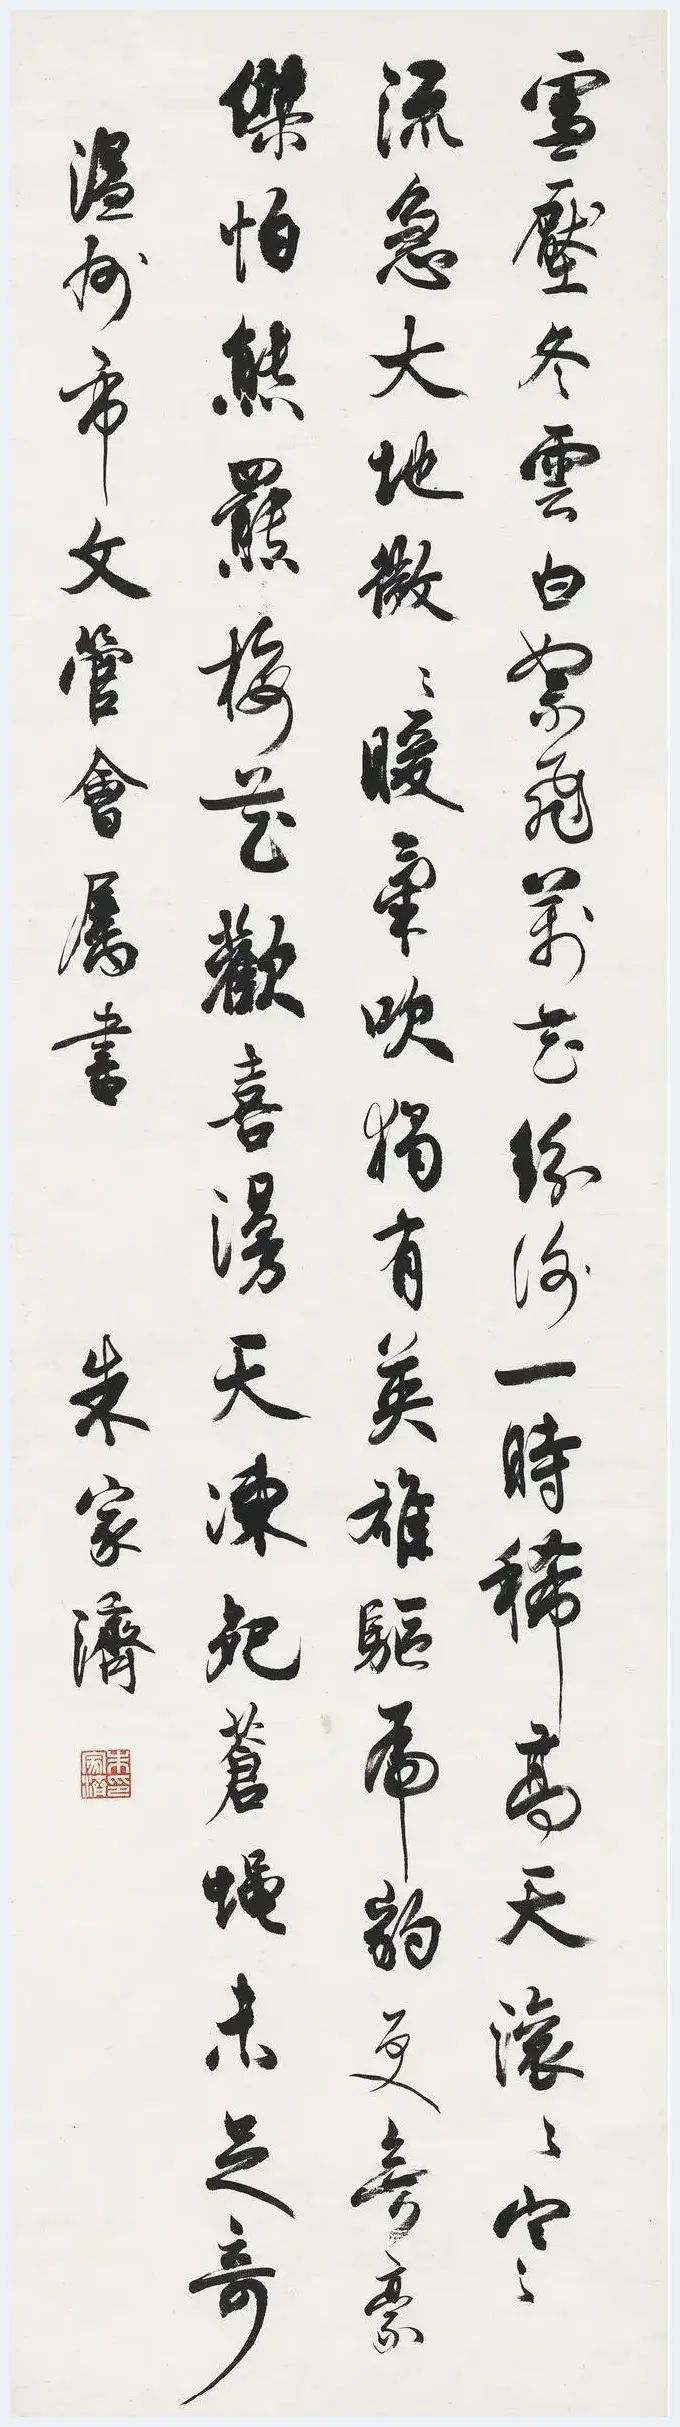 雪壓冬雲白絮飛萬花紛謝一時稀高天滾〻寒
流急大地微〻暖氣吹獨有英雄驅虎豹更無豪
傑怕熊羆梅花歡喜漫天凍死蒼蠅未足奇
溫州市文管會屬書 朱家濟
朱家濟印